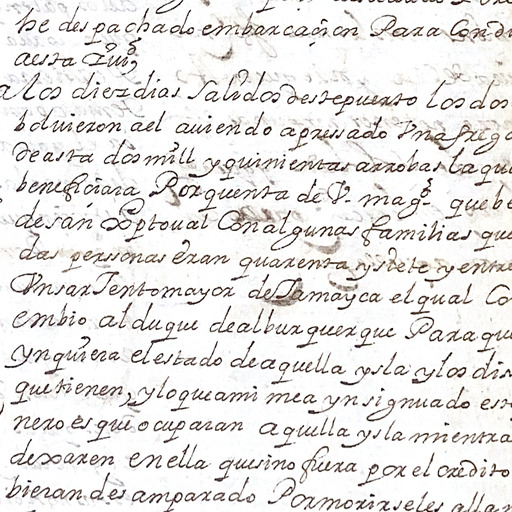 he despachado embarcacion Para Condu
aesta
alos diez dias salidos deste puerto los dos
bolvieron ael aviendo apressado Vna frega
de asta dos mill y quinientas arrobas la qu
beneficiara Por quenta de V. mag.d que be
de san xptoual Con algunas familias que
das perssonas eran quarenta y siete y entre
Vnsarjento mayor de Jamayca el qual Co
embio al duque de alburquerque Para qu
ynquiera el estado de aquella ysla y los dis
que tienen, y lo que ami me a ynsignuado est
nero es que ocuparan aquella ysla mientra
dexaren en ella que sino fuera por el credito
bieran desamparado Por morirseles alla